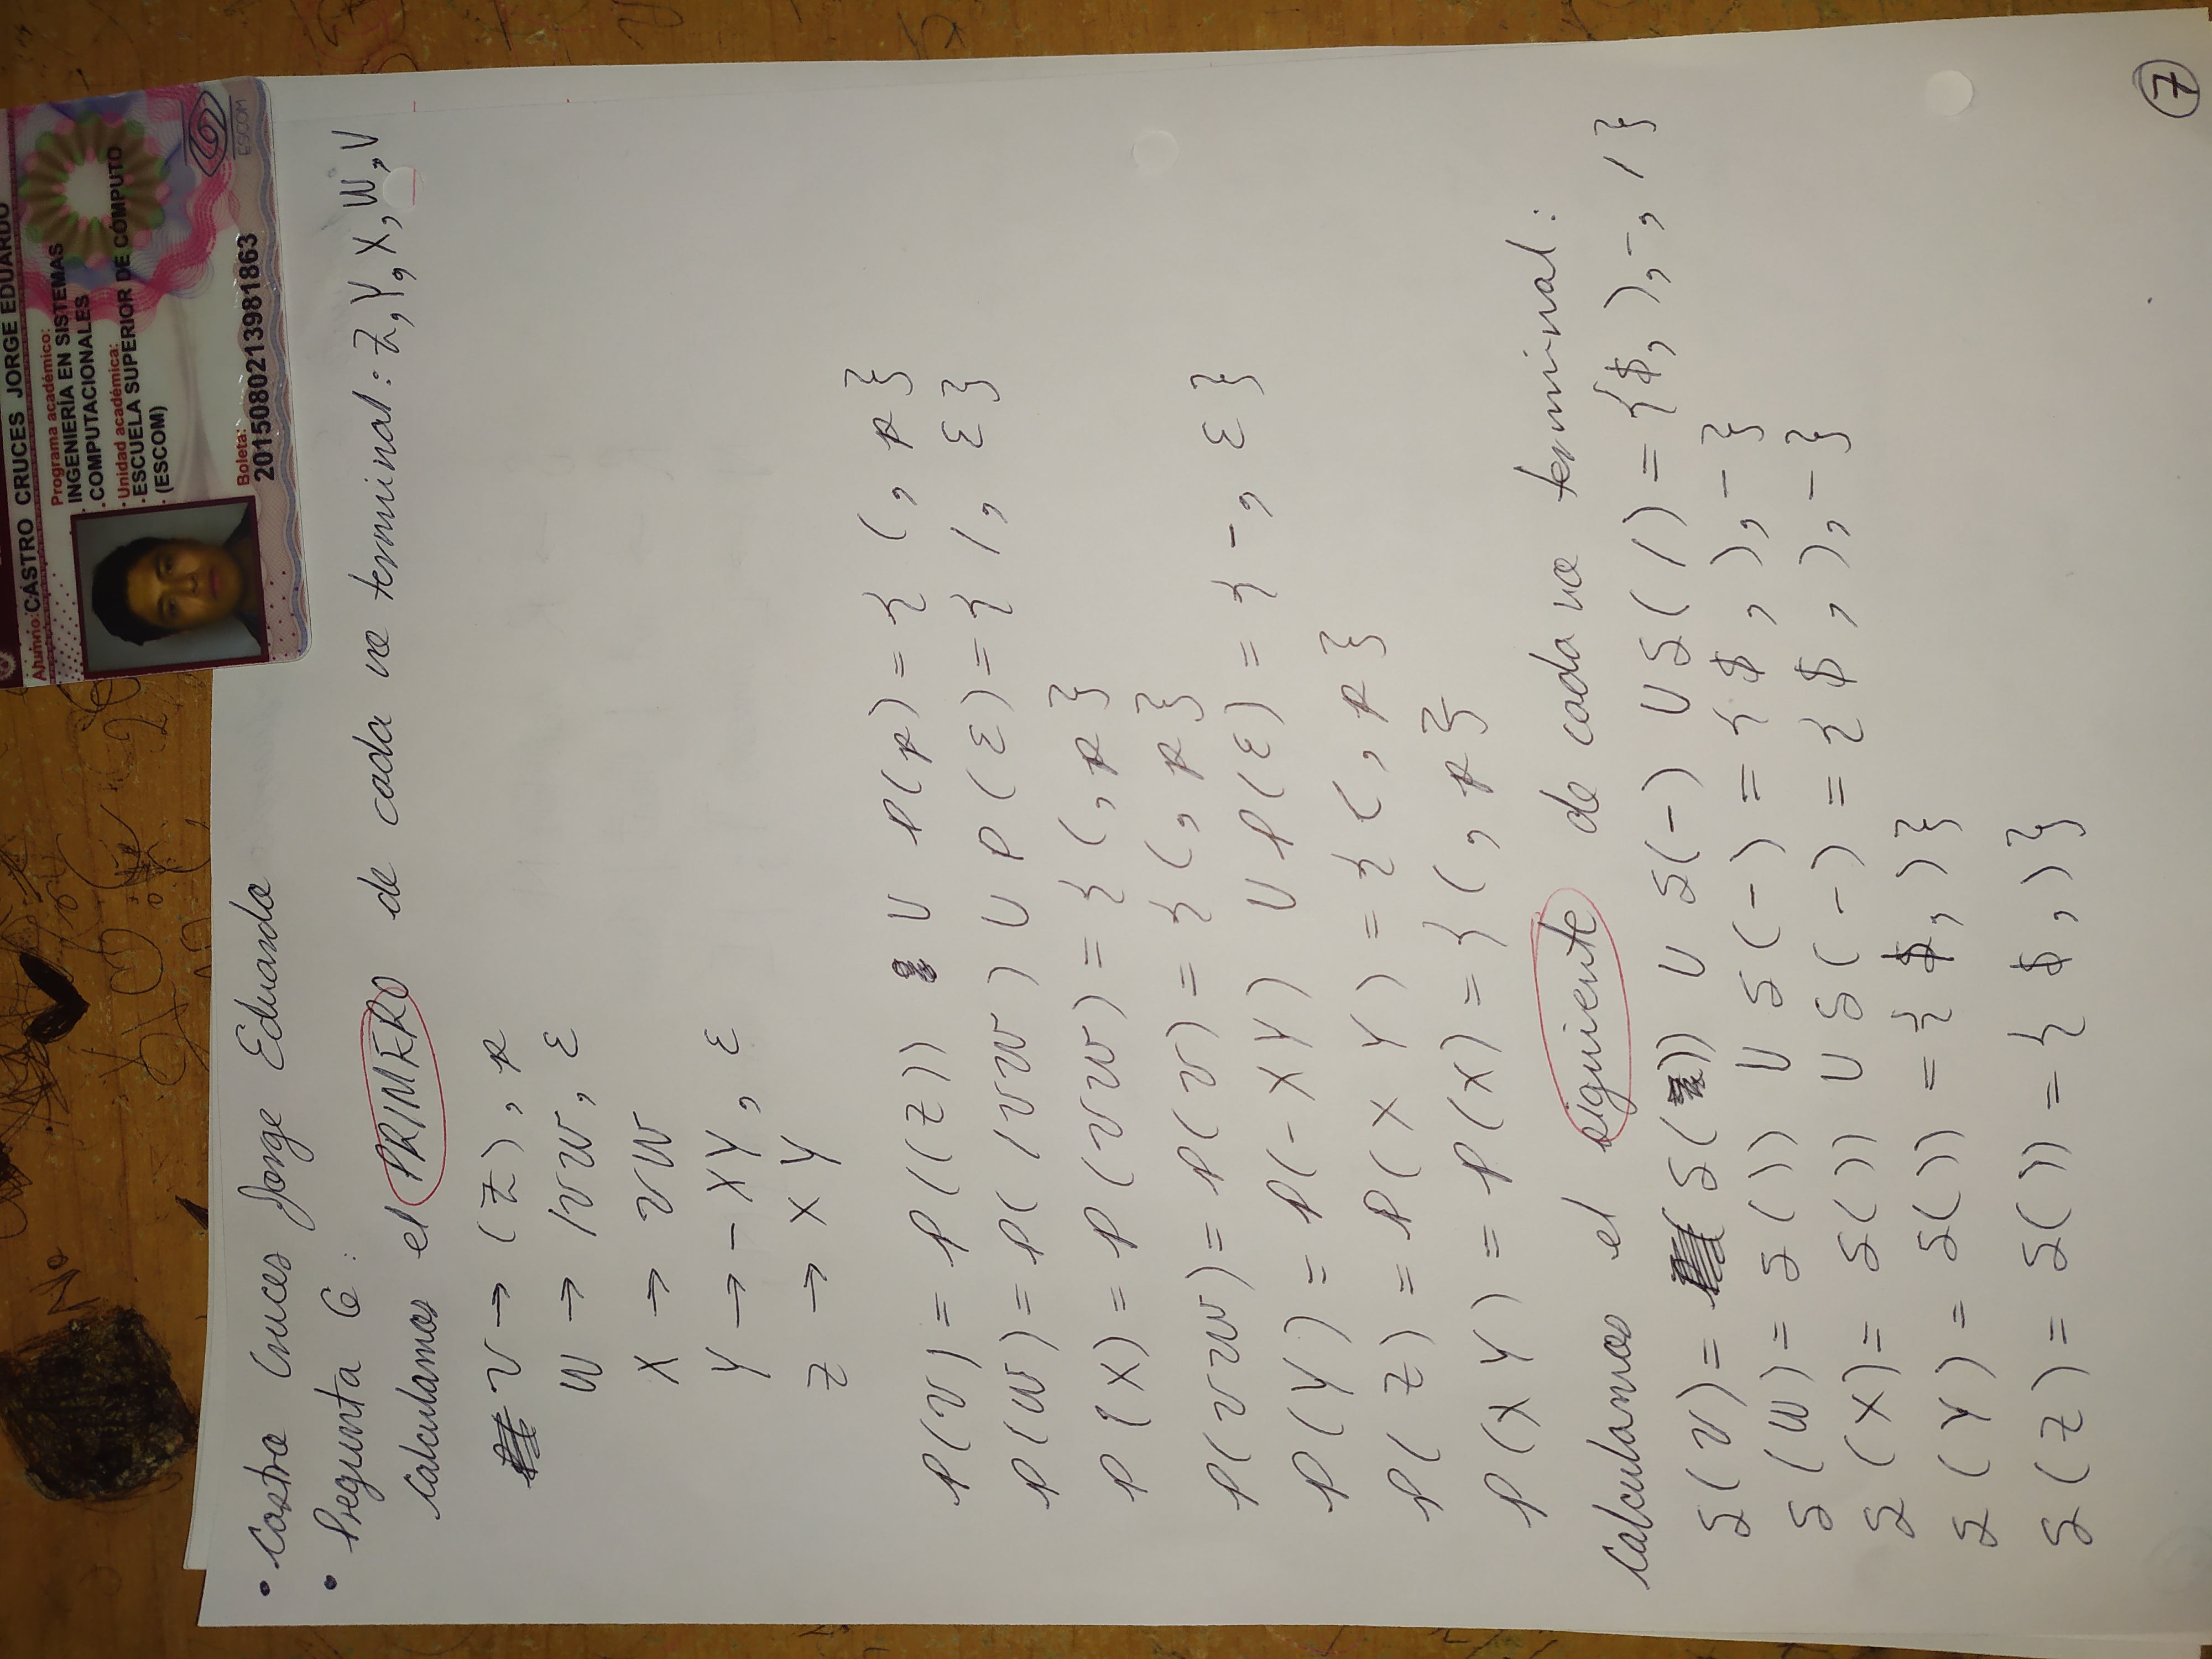 Alumno: CASTRO CRUCES JORGE EDUARDO
Programa académico:
INGENIERÍA EN SISTEMAS
COMPUTACIONALES
Unidad académica:
ESCUELA SUPERIOR DE CÓMPUTO
(ESCOM)
Boleta:
2015080213981863
ESCOM
• Castro Cruces Jorge Eduardo
• Pregunta 6:
Calculamos el PRIMERO de cada no terminal: Z, Y, X, W, V
V → (Z), p
W → /VW, ε
X → VW
Y → -XY, ε
Z → XY
P(V) = P((Z)) U P(p) = { (, p}
P(W) = P( /VW ) U P(ε) = { /, ε}
P(X) = P(VW) = { (, p}
P(VW) = P(V) = { (, p}
P(Y) = P(-XY) U P(ε) = { -, ε}
P(Z) = P(XY) = { (, p}
P(XY) = P(X) = { (, p}
Calculamos el siguiente de cada no terminal:
S(V) = S()) U S(-) U S(/) = {$, ), -, /}
S(W) = S()) U S(-) = {$, ), -}
S(X) = S()) U S(-) = {$, ), -}
S(Y) = S()) = {$, )}
S(Z) = S()) = {$, )}
7